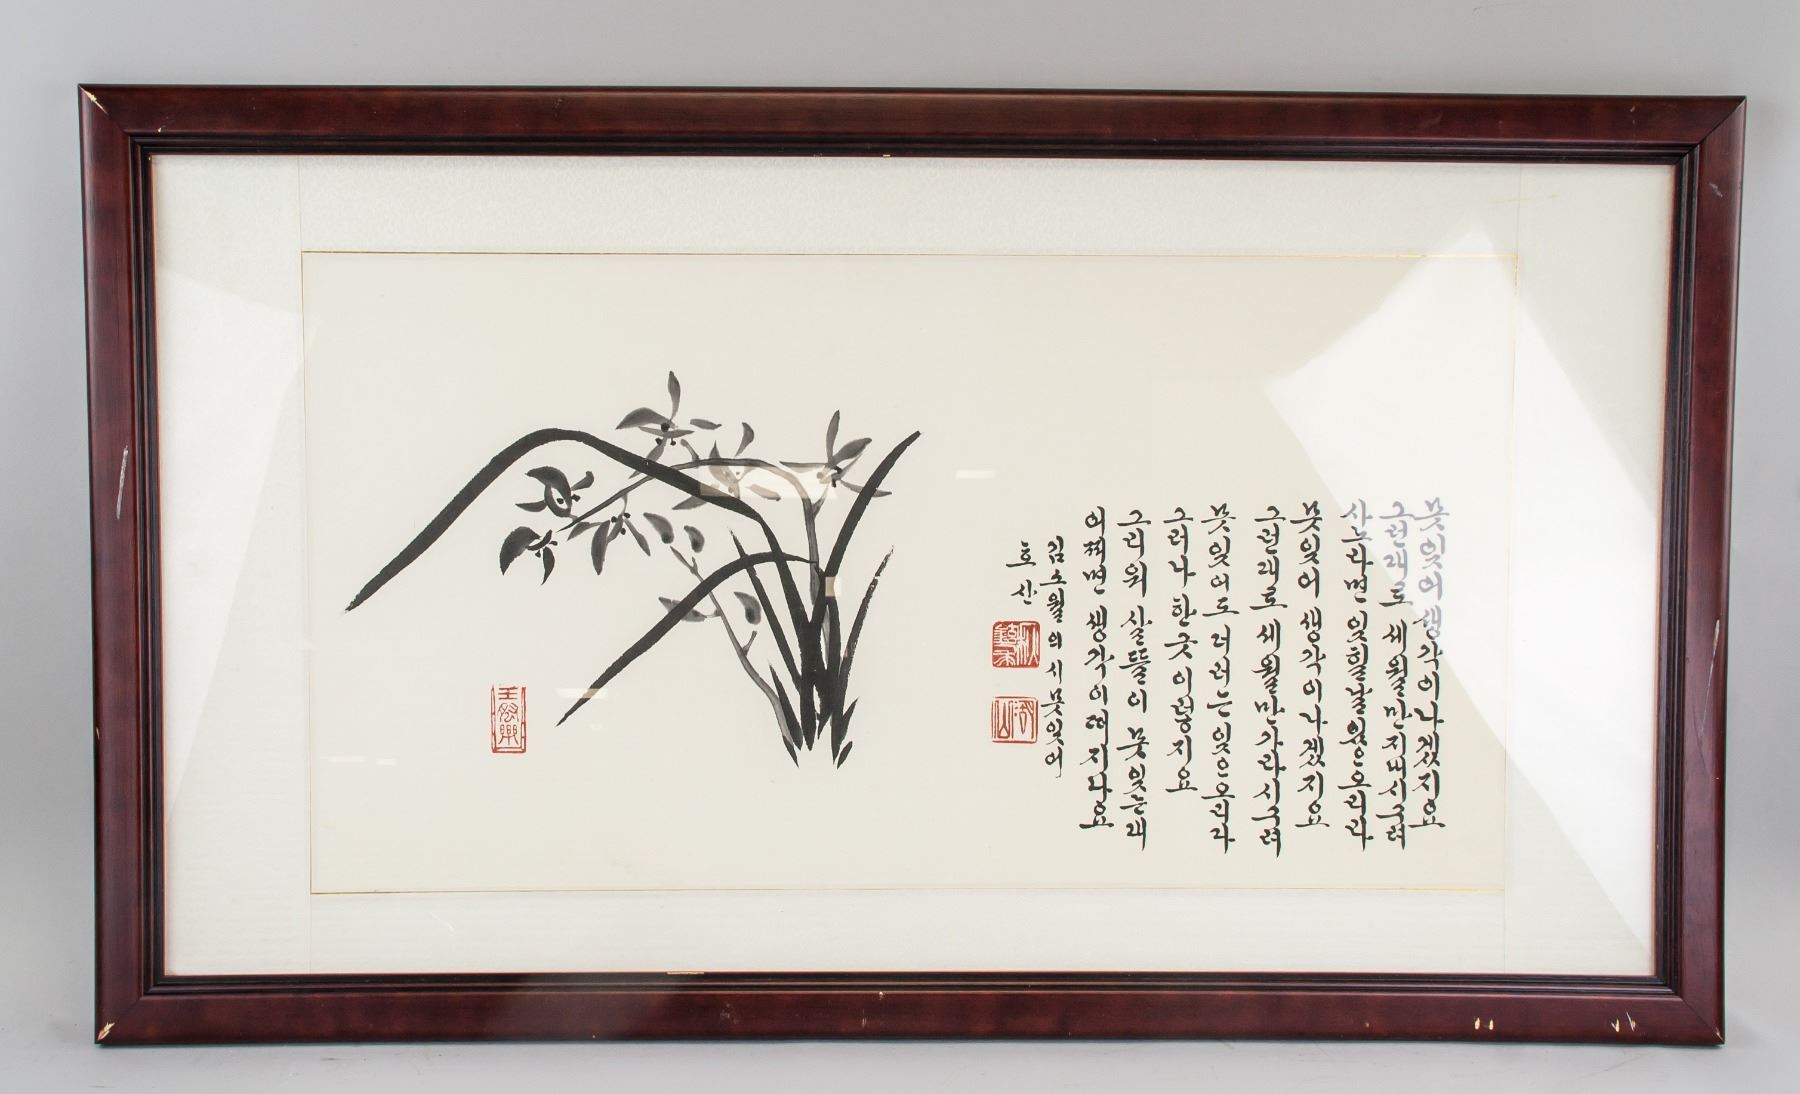 못잊어 생각이 나겠지요
그런대로 세월만 지내시구려
사노라면 잊힐날 있으오리다
못잊어 생각이 나겠지요
그런대로 세월만 가라시구려
못잊어도 더러는 잊으오리다
그러나 한긋 이렇지요
그리워 살뜰이 못잊는데
어쩌면 생각이 떠지나요
김소월의 시 못잊어
호산